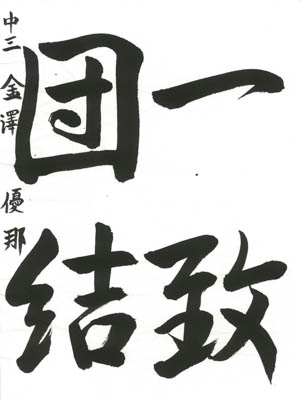 一致
団結
中三 金澤 優那